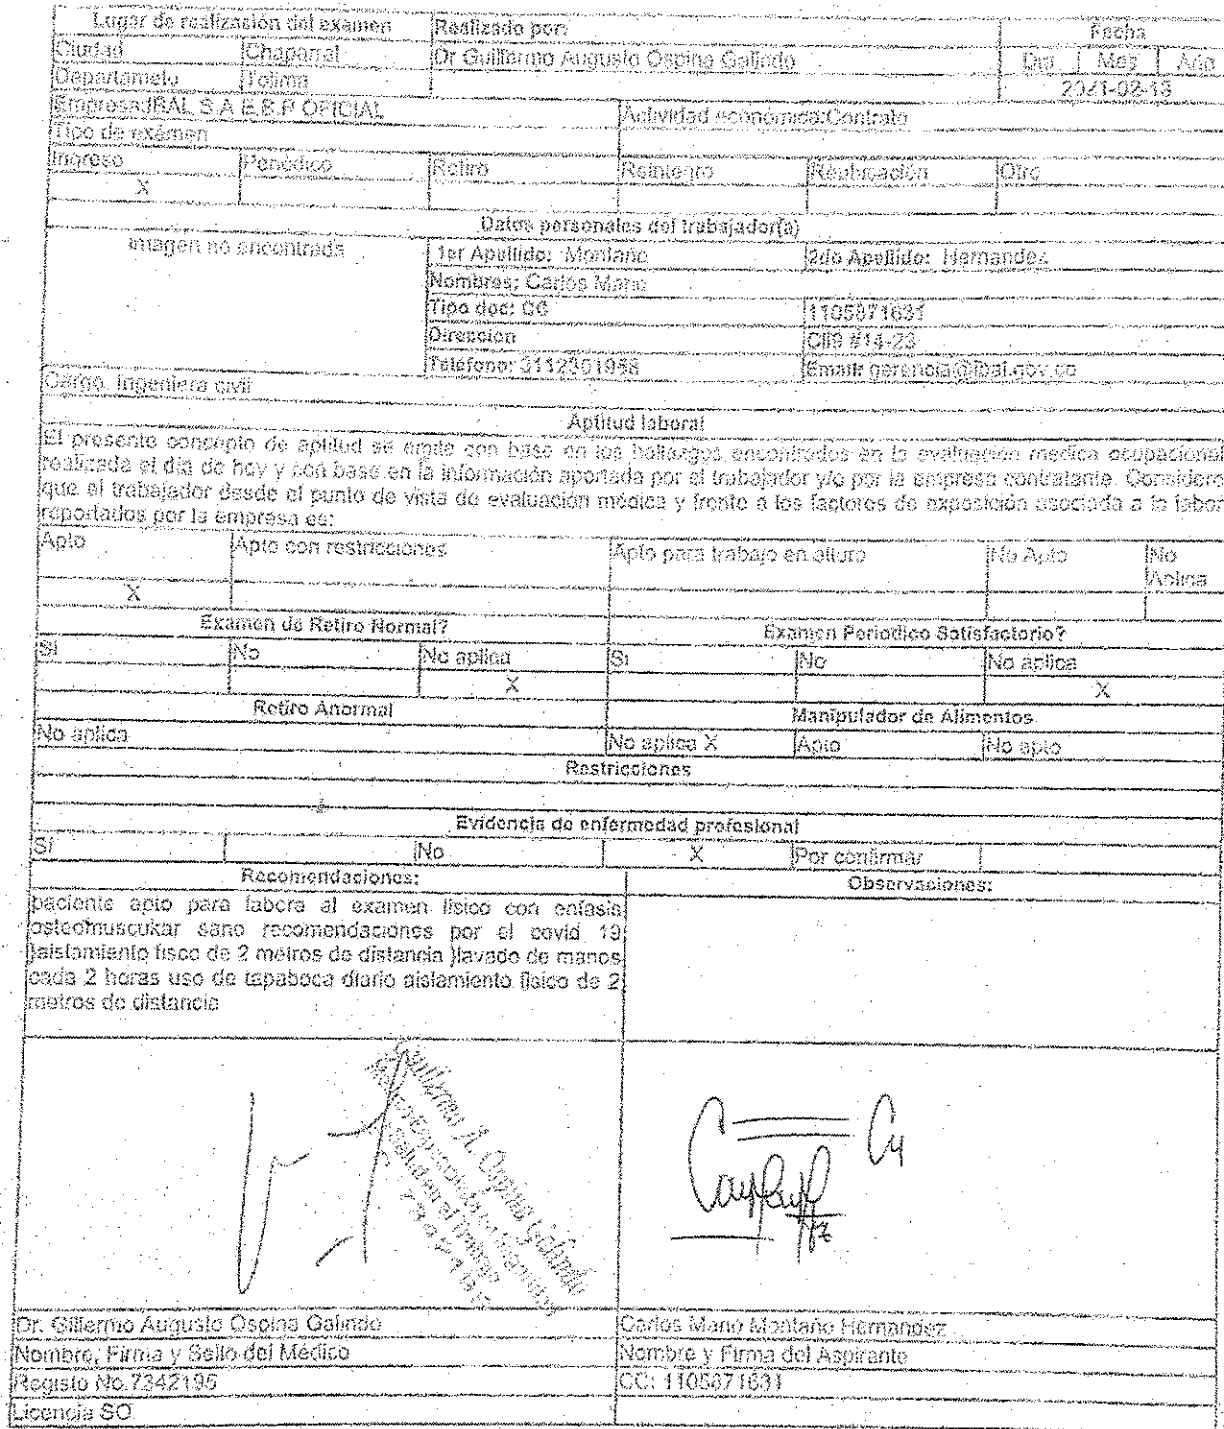 Lugar de realización del examen Realizado por: Fecha
Ciudad Chaparral Dr Guillermo Augusto Ospina Galindo Dia Mes Año
Departameto Tolima 2021-02-18
Empresa:IBAL S.A E.S.P OFICIAL Actividad economica:Contrato
Tipo de exámen
Ingreso Periódico Retiro Reintegro Reubicación Otro
X
Datos personales del trabajador(a)
Imagen no encontrada 1er Apellido: Montaño 2do Apellido: Hernandez
Nombres: Carlos Mario
Tipo doc: CC 1105671631
Direccion Cll9 #14-23
Teléfono: 3112301958 Email: gerencia@ibal.gov.co
Cargo. Ingeniera civil
Aptitud laboral
El presente concepto de aptitud se emite con base en los hallazgos encontrados en la evaluación medica ocupacional
realizada el día de hoy y con base en la información aportada por el trabajador y/o por la empresa contratante. Considero
que el trabajador desde el punto de vista de evaluación médica y frente a los factores de exposición asociada a la labor
reportados por la empresa es:
Apto Apto con restricciones Apto para trabajo en altura No Apto No
Aplica
X
Examen de Retiro Normal? Examen Periodico Satisfactorio?
Si No No aplica Si No No aplica
X X
Retiro Anormal Manipulador de Alimentos
No aplica No aplica X Apto No apto
Restricciones
Evidencia de enfermedad profesional
Si No X Por confirmar
Recomendaciones: Observaciones:
paciente apto para labora al examen fisico con enfasis
osteomuscukar sano recomendaciones por el covid 19
)aislamiento fisco de 2 metros de distancia )lavado de manos
cada 2 horas uso de tapaboca diario aislamiento fisico de 2
metros de distancia
Guillermo A. Ospina Galindo
Salud en el Trabajo
Dr. Gillermo Augusto Ospina Galindo Carlos Mario Montaño Hernandez
Nombre, Firma y Sello del Médico Nombre y Firma del Aspirante
Registo No.7342195 CC: 1105671631
Licencia SO